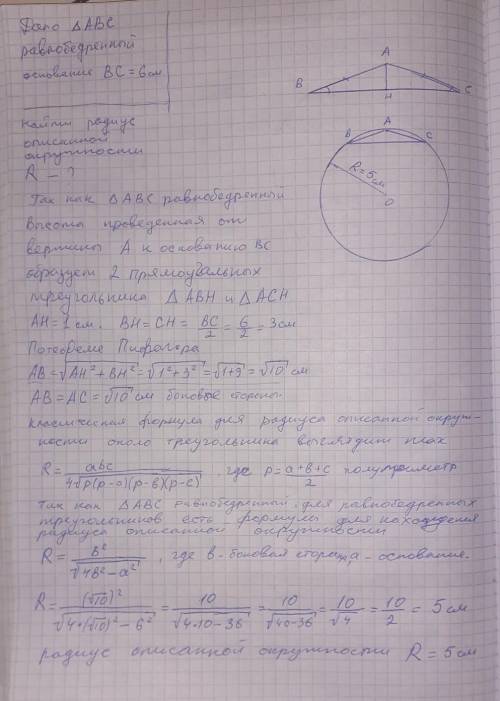 Дано △ABC
равнобедренный
основание BC = 6 см
Найти радиус
описанной
окружности
R – ?
A
B
H
C
A
B
C
R=5см
O
Так как △ABC равнобедренный
Высота проведенная от
вершины A к основанию BC
образует 2 прямоугольных
треугольника △ABH и △ACH
AH = 1 см. BH = CH = BC/2 = 6/2 = 3 см
По теореме Пифагора
AB = √(AH² + BH²) = √(1² + 3²) = √(1+9) = √10 см
AB = AC = √10 см боковые стороны.
Классическая формула для радиуса описанной окруж-
ности около треугольника выглядит так
R = abc / 4√(p(p-a)(p-b)(p-c)), где p = (a+b+c)/2 полупериметр
Так как △ABC равнобедренный для равнобедренных
треугольников есть формулы для нахождения
радиуса описанной окружности
R = b² / √(4b² - a²), где b - боковая сторона a - основание.
R = (√10)² / √(4*(√10)² - 6²) = 10 / √(4·10-36) = 10 / √(40-36) = 10 / √4 = 10/2 = 5 см
радиус описанной окружности R = 5 см